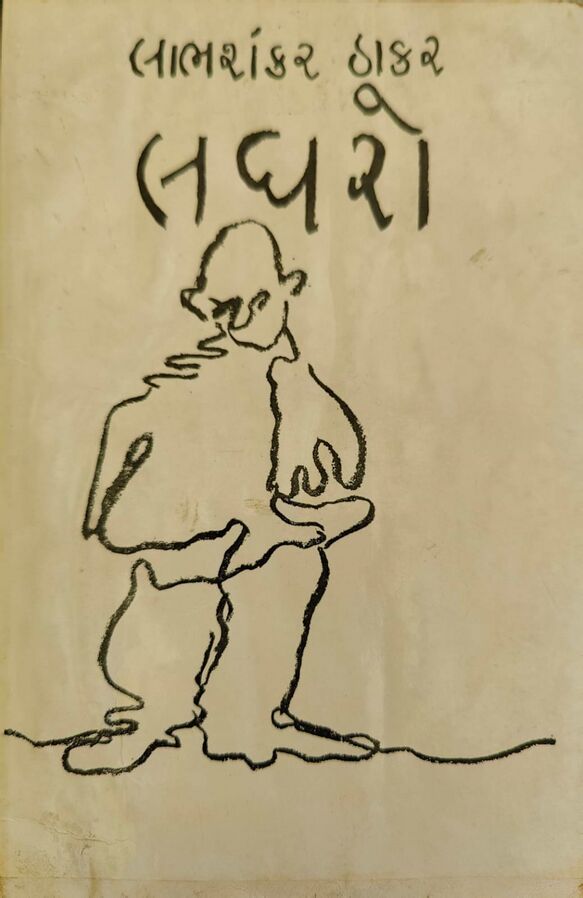 લાભશંકર ઠાકર
લઘરો